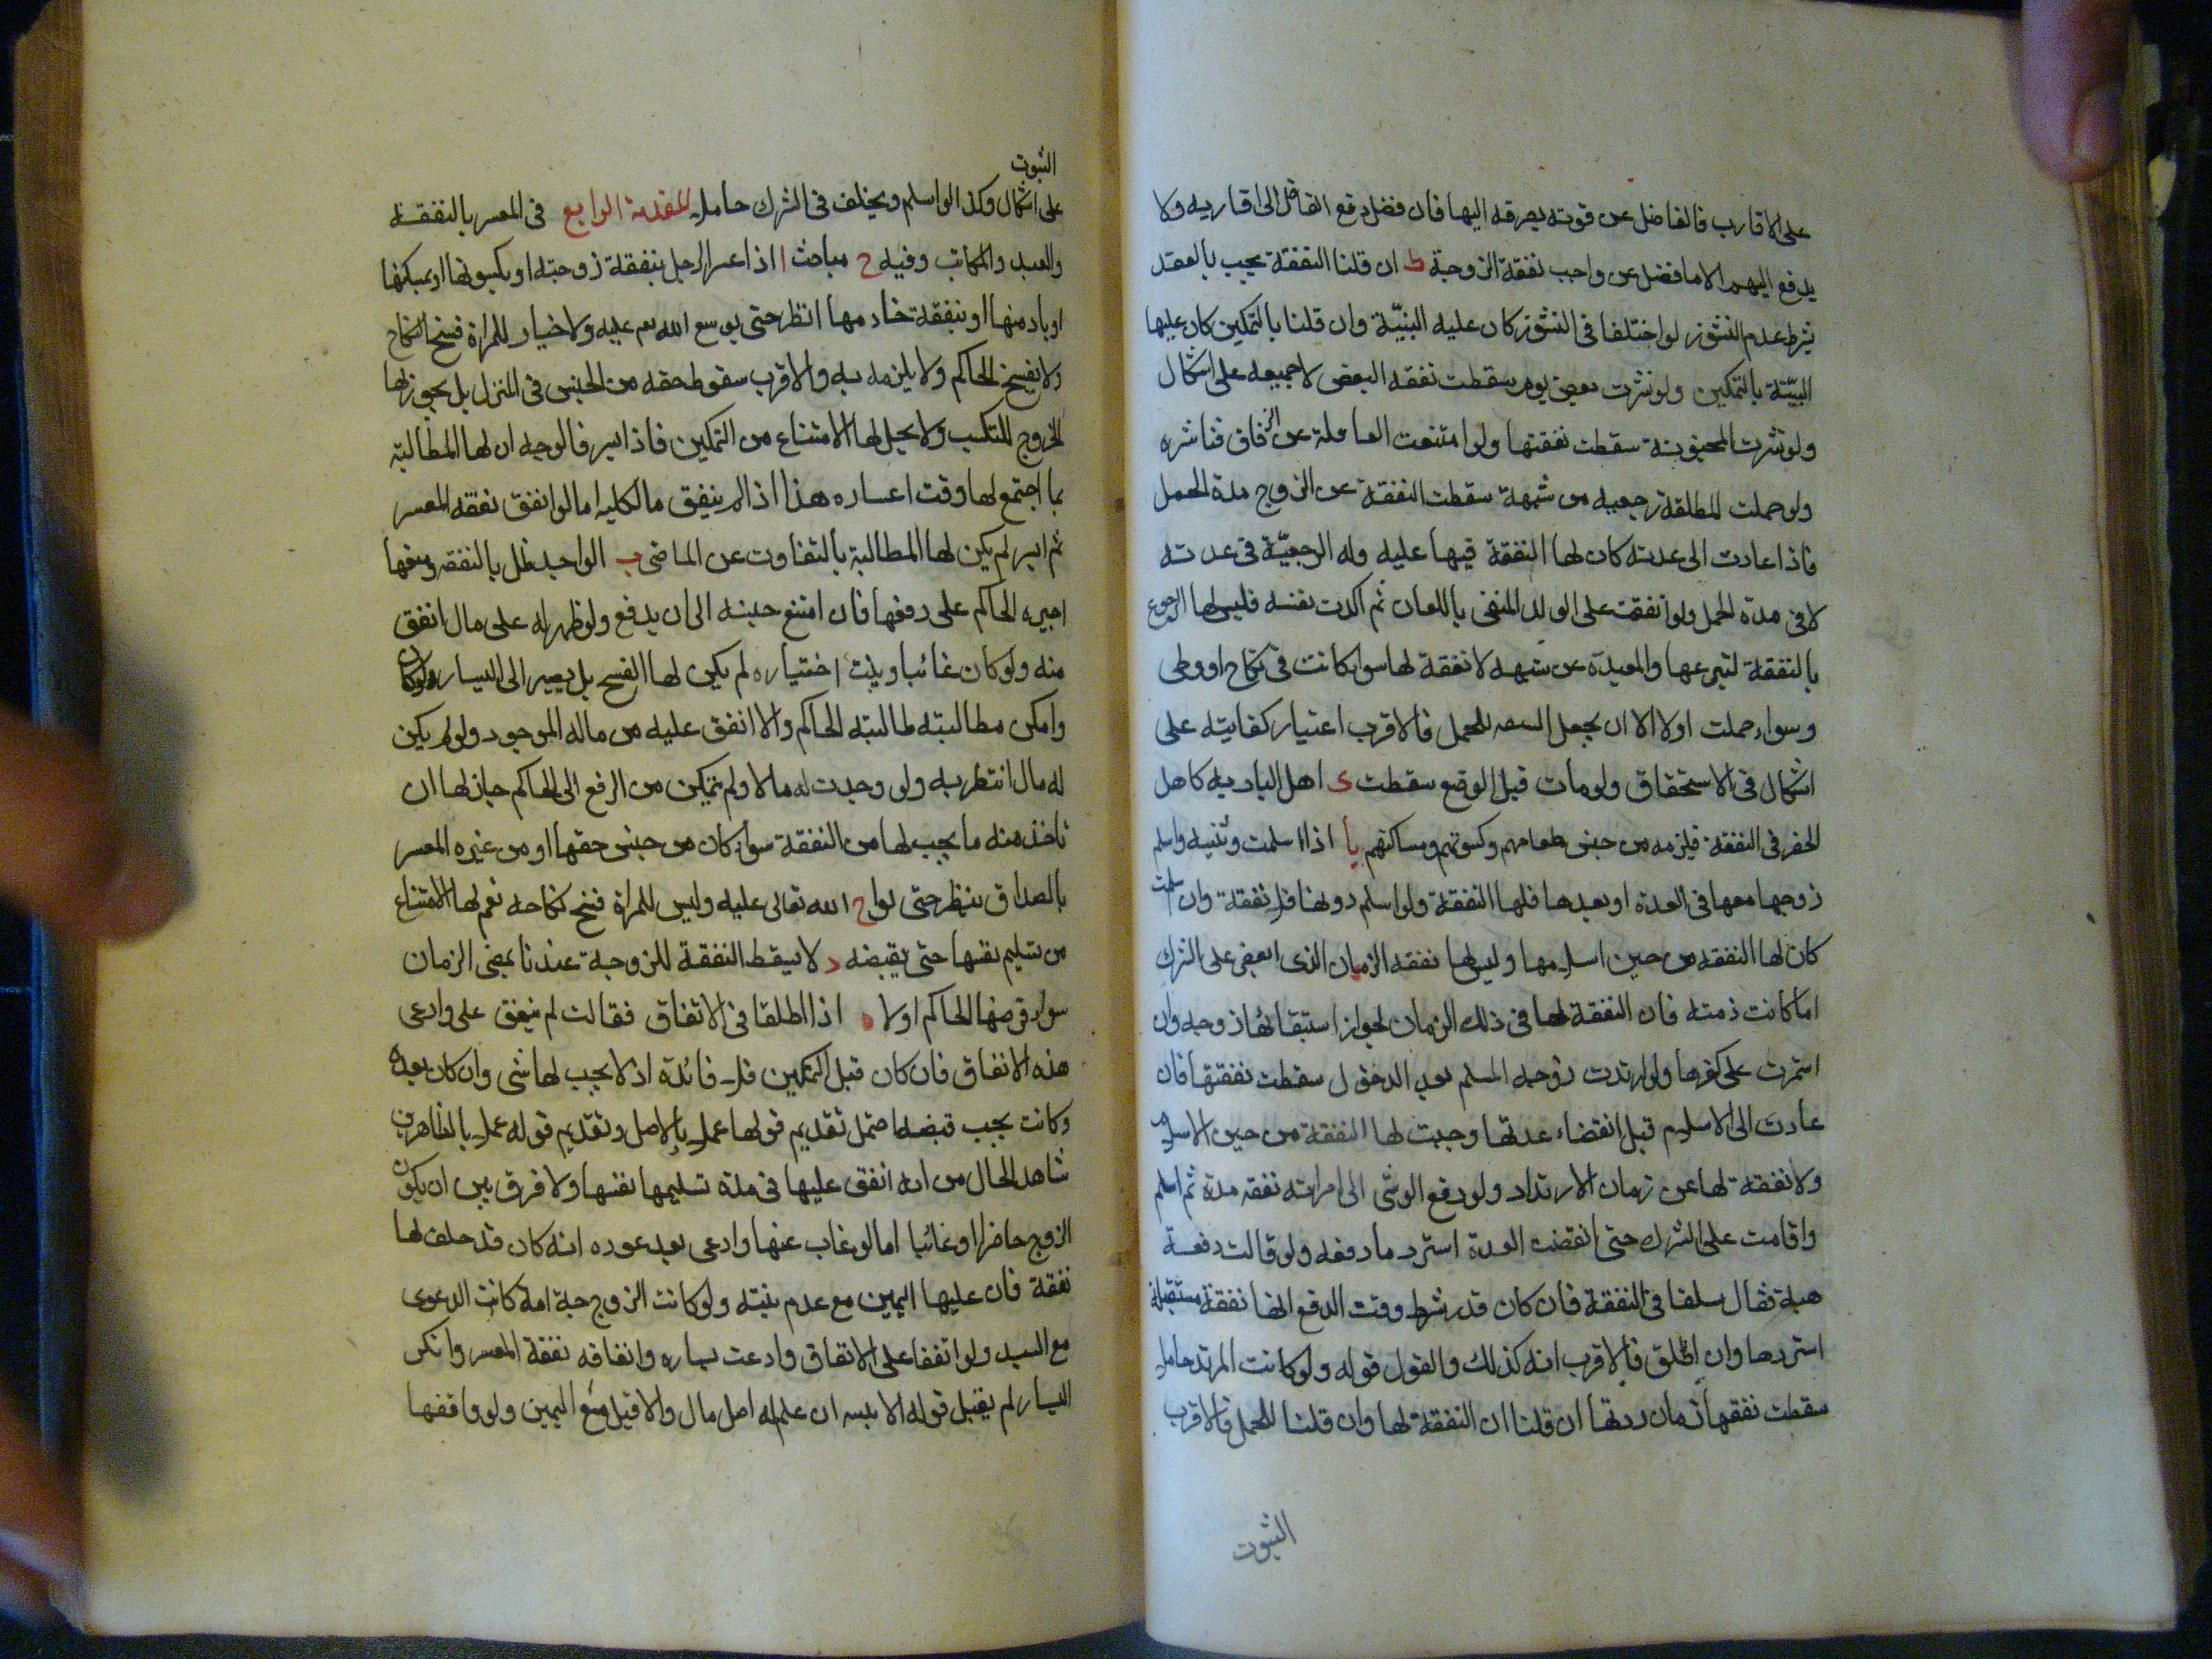 على الاقارب فالفاضل عن قوته يصرفه اليها فان فضل دفع الفاضل الى اقاربه ولا
يدفع اليهم الا ما فضل عن واجب نفقة الزوجة ط ان قلنا النفقة يجب بالعقد
بشرط عدم النشوز لو اختلفا فى النشوز كان عليه البنيّة وان قلنا بالتمكين كان عليها
البيّنة بالتمكين ولو نشرت بعض يوم سقطت نفقه البعض لا جميعه على اشكال
ولو نشرت المجنونة سقطت نفقتها ولو امتنعت العاملة عن الزفاف فناشره
ولو حملت المطلقة رجعيه من شبهة سقطت النفقة عن الزوج مدة الحمل
فاذا عادت الى عدته كان لها النفقة فيها عليه وله الرجعيّة فى عدته
لا فى مدّة الحمل ولو انفقت على الولد المنفى باللعان ثم اكدت نفسه فليس لها الرجوع
بالنفقة لتبرعها والمعتدّه عن شبهه لا نفقة لها سواء كانت فى نكاح او وطى
وسواء حملت اولا الا ان يجعل النفقه للحمل فالاقرب اعتبار كفايته على
اشكال فى الاستحقاق ولو مات قبل الوضع سقطت ى اهل الباديه كاهل
الحضر فى النفقة فيلزمه من جنس طعامهم وكسوتهم ومساكنهم يا اذا اسلمت وثنيه واسلم
زوجها معها فى العدة او بعدها فلها النفقة ولو اسلم دونها فلا نفقة وان اسلمت
كان لها النفقه من حين اسلامها وليس لها نفقه الزمان الذى انقضى على الترك
اما كانت ذمته فان النفقة لها فى ذلك الزمان لجواز استبقائها زوجه وان
استمرت على كفرها ولو ارتدت زوجه المسلم بعد الدخول سقطت نفقتها فان
عادت الى الاسلام قبل انقضاء عدتها وجبت لها النفقة من حين الاسلام
ولا نفقة لها عن زمان الارتداد ولو دفع الوثنى الى امراته نفقه مدة ثم اسلم
واقامت على الشرك حتى انقضت العدة استرد ما دفعه ولو قالت دفعة
هبة فقال سلفا فى النفقة فان كان قد شرط وقت الدفع انها نفقة مستقبلة
استردها وان اطلق فالاقرب انه كذلك والقول قوله ولو كانت المرتد حاملا
سقطت نفقها زمان ردتها ان قلنا ان النفقة لها وان قلنا للحمل فالاقرب
الثبوت
الثبوت
على اشكال وكذا لو اسلم ويخلف فى الشرك حاملا المقدمة الرابع فى المعسر بالنفقة
والعبد والمكاتب وفيه ح مباحث ا اذا عسر الرجل بنفقة زوجته او بكسوتها او بمسكنها
او بادمنها او بنفقة خادمها انظر حتى يوسع الله تعم عليه ولا خيار للمراة فسخ النكاح
ولا يفسخ الحاكم ولا يلزمه به والاقرب سقوط حقه من الحبس فى المنزل بل يجوز لها
الخروج للتكسب ولا يحل لها الامتناع من التمكين فاذا ايسر فالوجه ان لها المطالبة
بما اجتمع لها وقت اعساره هذا اذا لم ينفق ما لكليه اما لو انفق نفقه المعسر
ثم ايسر لم يكن لها المطالبة بالتفاوت عن الماضى ب الواجد نلل بالنفقه ومنعها
اجبره الحاكم على دفعها فان امتنع حبسه الى ان يدفع ولو ظهر له على مال انفق
منه ولو كان غائبا ويثبت اختياره لم يكن لها الفسخ بل يصير الى اليسار ولو كان
وامكن مطالبته طالبته الحاكم والا انفق عليه من ماله الموجود ولو لم يكن
له مال انتظر به ولو وجدت له مالا ولم تتمكين من الرفع الى الحاكم جاز لها ان
تاخذ منه ما يجب لها من النفقة سواء كان من جنس حقها او من غيره المعسر
بالصداق ينظر حتى لواح الله تعالى عليه وليس للمراة فسخ نكاحه نعم لها الامتناع
من تسليم نفسها حتى يقبضه د لا يسقط النفقة للزوجة عندنا بمضى الزمان
سواء فرضها الحاكم اولا ه اذا اطلقا فى الانفاق فقالت لم ينفق على وادعى
هذه الانفاق فان كان قبل التمكين فلا فائدة اذ لا يجب لها شى وان كان بعده
وكانت يجب قبضها احتمل تقديم قولها عملا بالاصل وتقديم قوله عملا بالظاهر من
شاهد الحال من انه انفق عليها فى مدة تسليمها نفسها ولا فرق بين ان يكون
الزوج حاضرا او غائبا اما لو غاب عنها وادعى بعد عوده انه كان قد خلف لها
نفقة فان عليها اليمين مع عدم بنيته ولو كانت الزوجة امة كانت الدعوى
مع السيد ولو اتفقا على الانفاق وادعت يساره وانفاقه نفقة المعسر وانكر
اليسار لم يقبل قوله الا ببينه ان علم له اصل مال والا قبل مع اليمين ولو وافقها